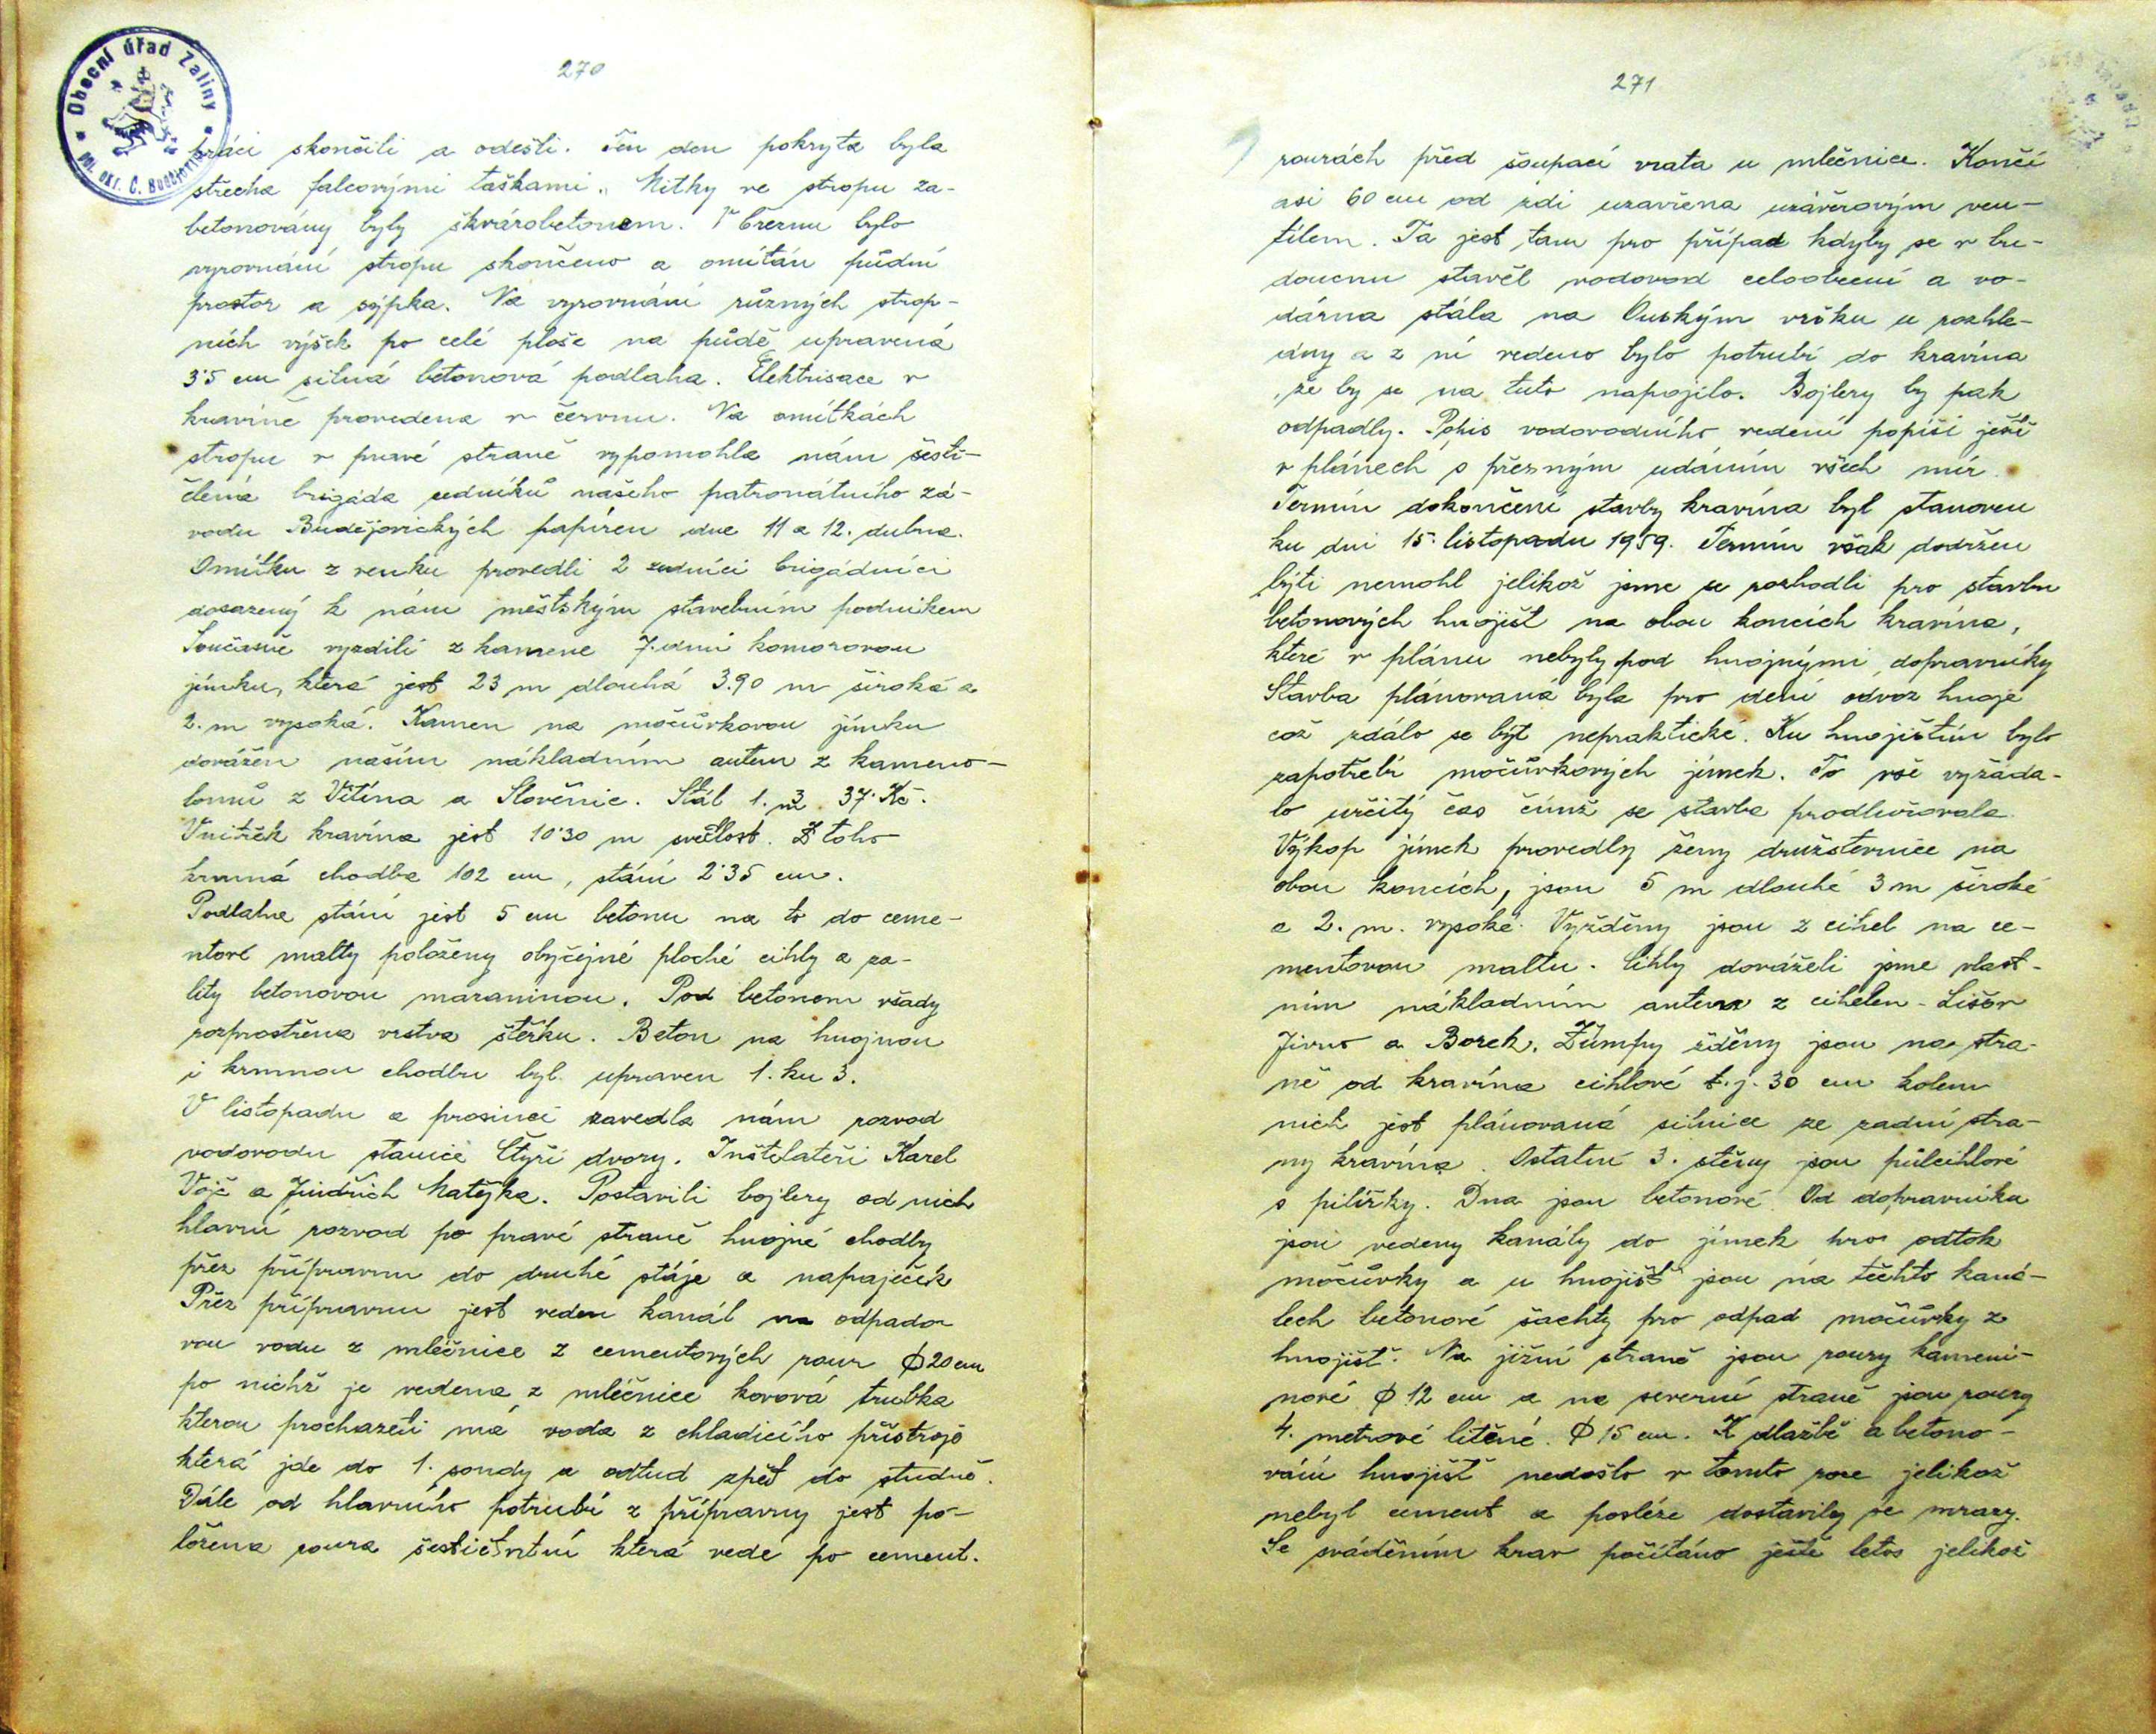 Obecní úřad Zaliny
270
práci skončili a odešli. Ten den pokryta byla
střecha falcovými taškami. Nitky ve stropu za-
betonovány byly škvárobetonem. V březnu bylo
vyrovnání stropu skončeno a omítán půdní
prostor a sýpka. Na vyrovnání různých strop-
ních výšek po celé ploše na půdě upravená
3·5 cm silná betonová podlaha. Elektrisace v
kravíně provedena v červnu. Na omítkách
stropu v pravé straně vypomohla nám šesti-
členná brigáda zedníků našeho patronátního zá-
vodu Budějovických papíren dne 11 a 12. dubna.
Omítku z venku provedli 2 zedníci brigádníci
dosazený k nám městským stavebním podnikem
Současně vyzdili z kamene 7.dmi komorovou
jímku, která jest 23 m dlouhá 3.90 m široká a
2. m vysoká. Kamen na močůvkovou jímku
dovážen naším nákladním autem z kameno-
lomů z Vitína a Slověnic. Stál 1. m3. 37· Kč.
Vnitřek kravína jest 10·30 m světlost. Z toho
krmná chodba 102 cm, stání 2·35 cm.
Podlaha stání jest 5 cm betonu na to do ceme-
ntové malty položeny obyčejné ploché cihly a za-
lity betonovou mazaninou. Pod betonem všady
rozprostřena vrstva štěrku. Beton na hnojnou
i krmnou chodbu byl upraven 1. ku 3.
V listopadu a prosinci zavedla nám rozvod
vodovodu stanice Čtyři dvory. Inštelateři Karel
Vojč a Jindřich Matějka. Postavili bojlery od nich
hlavní rozvod po pravé straně hnojné chodby
přez přípravnu do druhé stáje a napaječek
Přez přípravnu jest veden kanál na odpado
vou vodu z mléčnice z cementových rour Φ 20 cm
po nichž je vedena z mléčnice kovová trubka
kterou procházeti má voda z chladicího přístroje
která jde do 1. sondy a odtud zpět do studně.
Dále od hlavního potrubí z přípravny jest po-
ložena roura šestičtvrtní která vede po cement.
271
rourách před šoupací vrata u mléčnice. Končí
asi 60 cm od zdi uzavřena uzávěrovým ven-
tilem. Ta jest tam pro případ kdyby se v bu-
doucnu stavěl vodovod celoobecní a vo-
dárna stála na Ouským vršku u rozhle-
dny a z ní vedeno bylo potrubí do kravína
že by se na tuto napojilo. Bojlery by pak
odpadly. Popis vodovodního vedení popíši ještě
v plánech s přezným udáním všech mír.
Termín dokončení stavby kravína byl stanoven
ku dni 15. listopadu 1959. Termín však dodržen
býti nemohl jelikož jsme se rozhodli pro stavbu
betonových hnojišt na obou koncích kravína,
které v plánu nebyly pod hnojnými dopravníky
Stavba plánovaná byla pro dení odvoz hnoje
což zdálo se být nepraktické. Ku hnojištím bylo
zapotřebí močůvkových jímek. To vše vyžáda-
lo určitý čas čímž se stavba prodlužovala.
Výkop jímek provedly ženy družstevnice na
obou koncích, jsou 5 m dlouhé 3 m široké
a 2. m. vysoké. Vyžděny jsou z cihel na ce-
mentovou maltu. Cihly dováželi jsme vlast-
ním nákladním autem z cihelen - Lišov
Jivno a Borek. Žumpy žděny jsou na stra-
ně od kravína cihlové t.j. 30 cm kolem
nich jest plánovaná silnice ze zadní stra-
ny kravína. Ostatní 3. stěny jsou půlcihlové
s pilířky. Dna jsou betonové. Od dopravníku
jsou vedeny kanály do jímek pro odtok
močůvky a u hnojišť jsou na těchto kaná-
lech betonové šachty pro odpad močůvky z
hnojišť. Na jižní straně jsou roury kameni-
nové Φ 12 cm a na severní straně jsou roury
4. metrové litěné. Φ 15 cm. K dlažbě a betono-
vání hnojišť nedošlo v tomto roce jelikož
nebyl cement a posléze dostavily se mrazy.
Se sváděním krav počítáno ještě letos jelikož